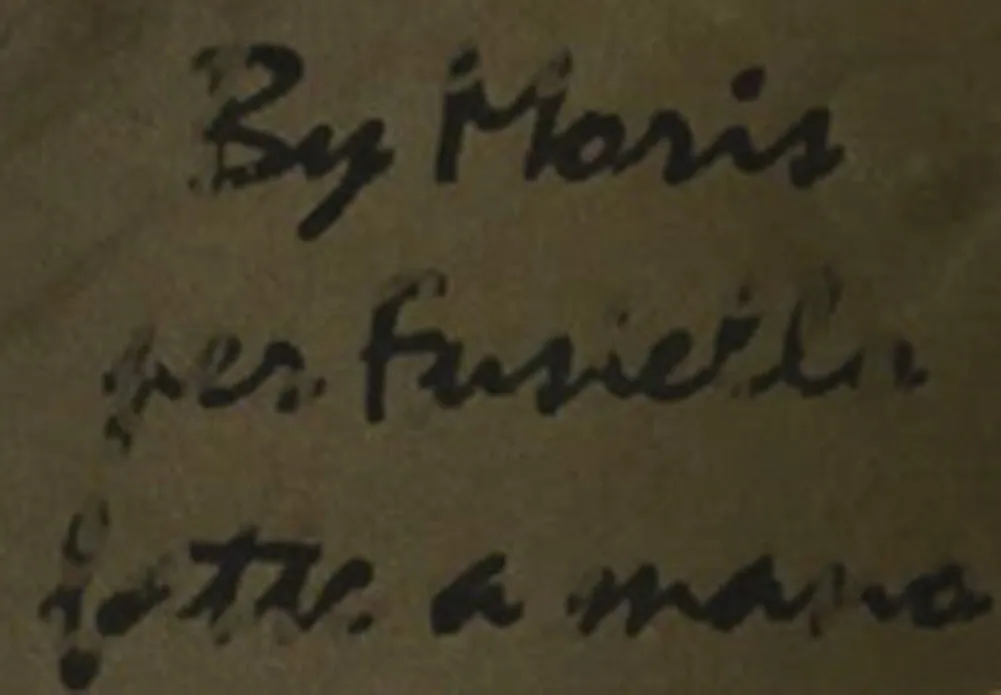 By Moris
per Fusiella
fatte a mano